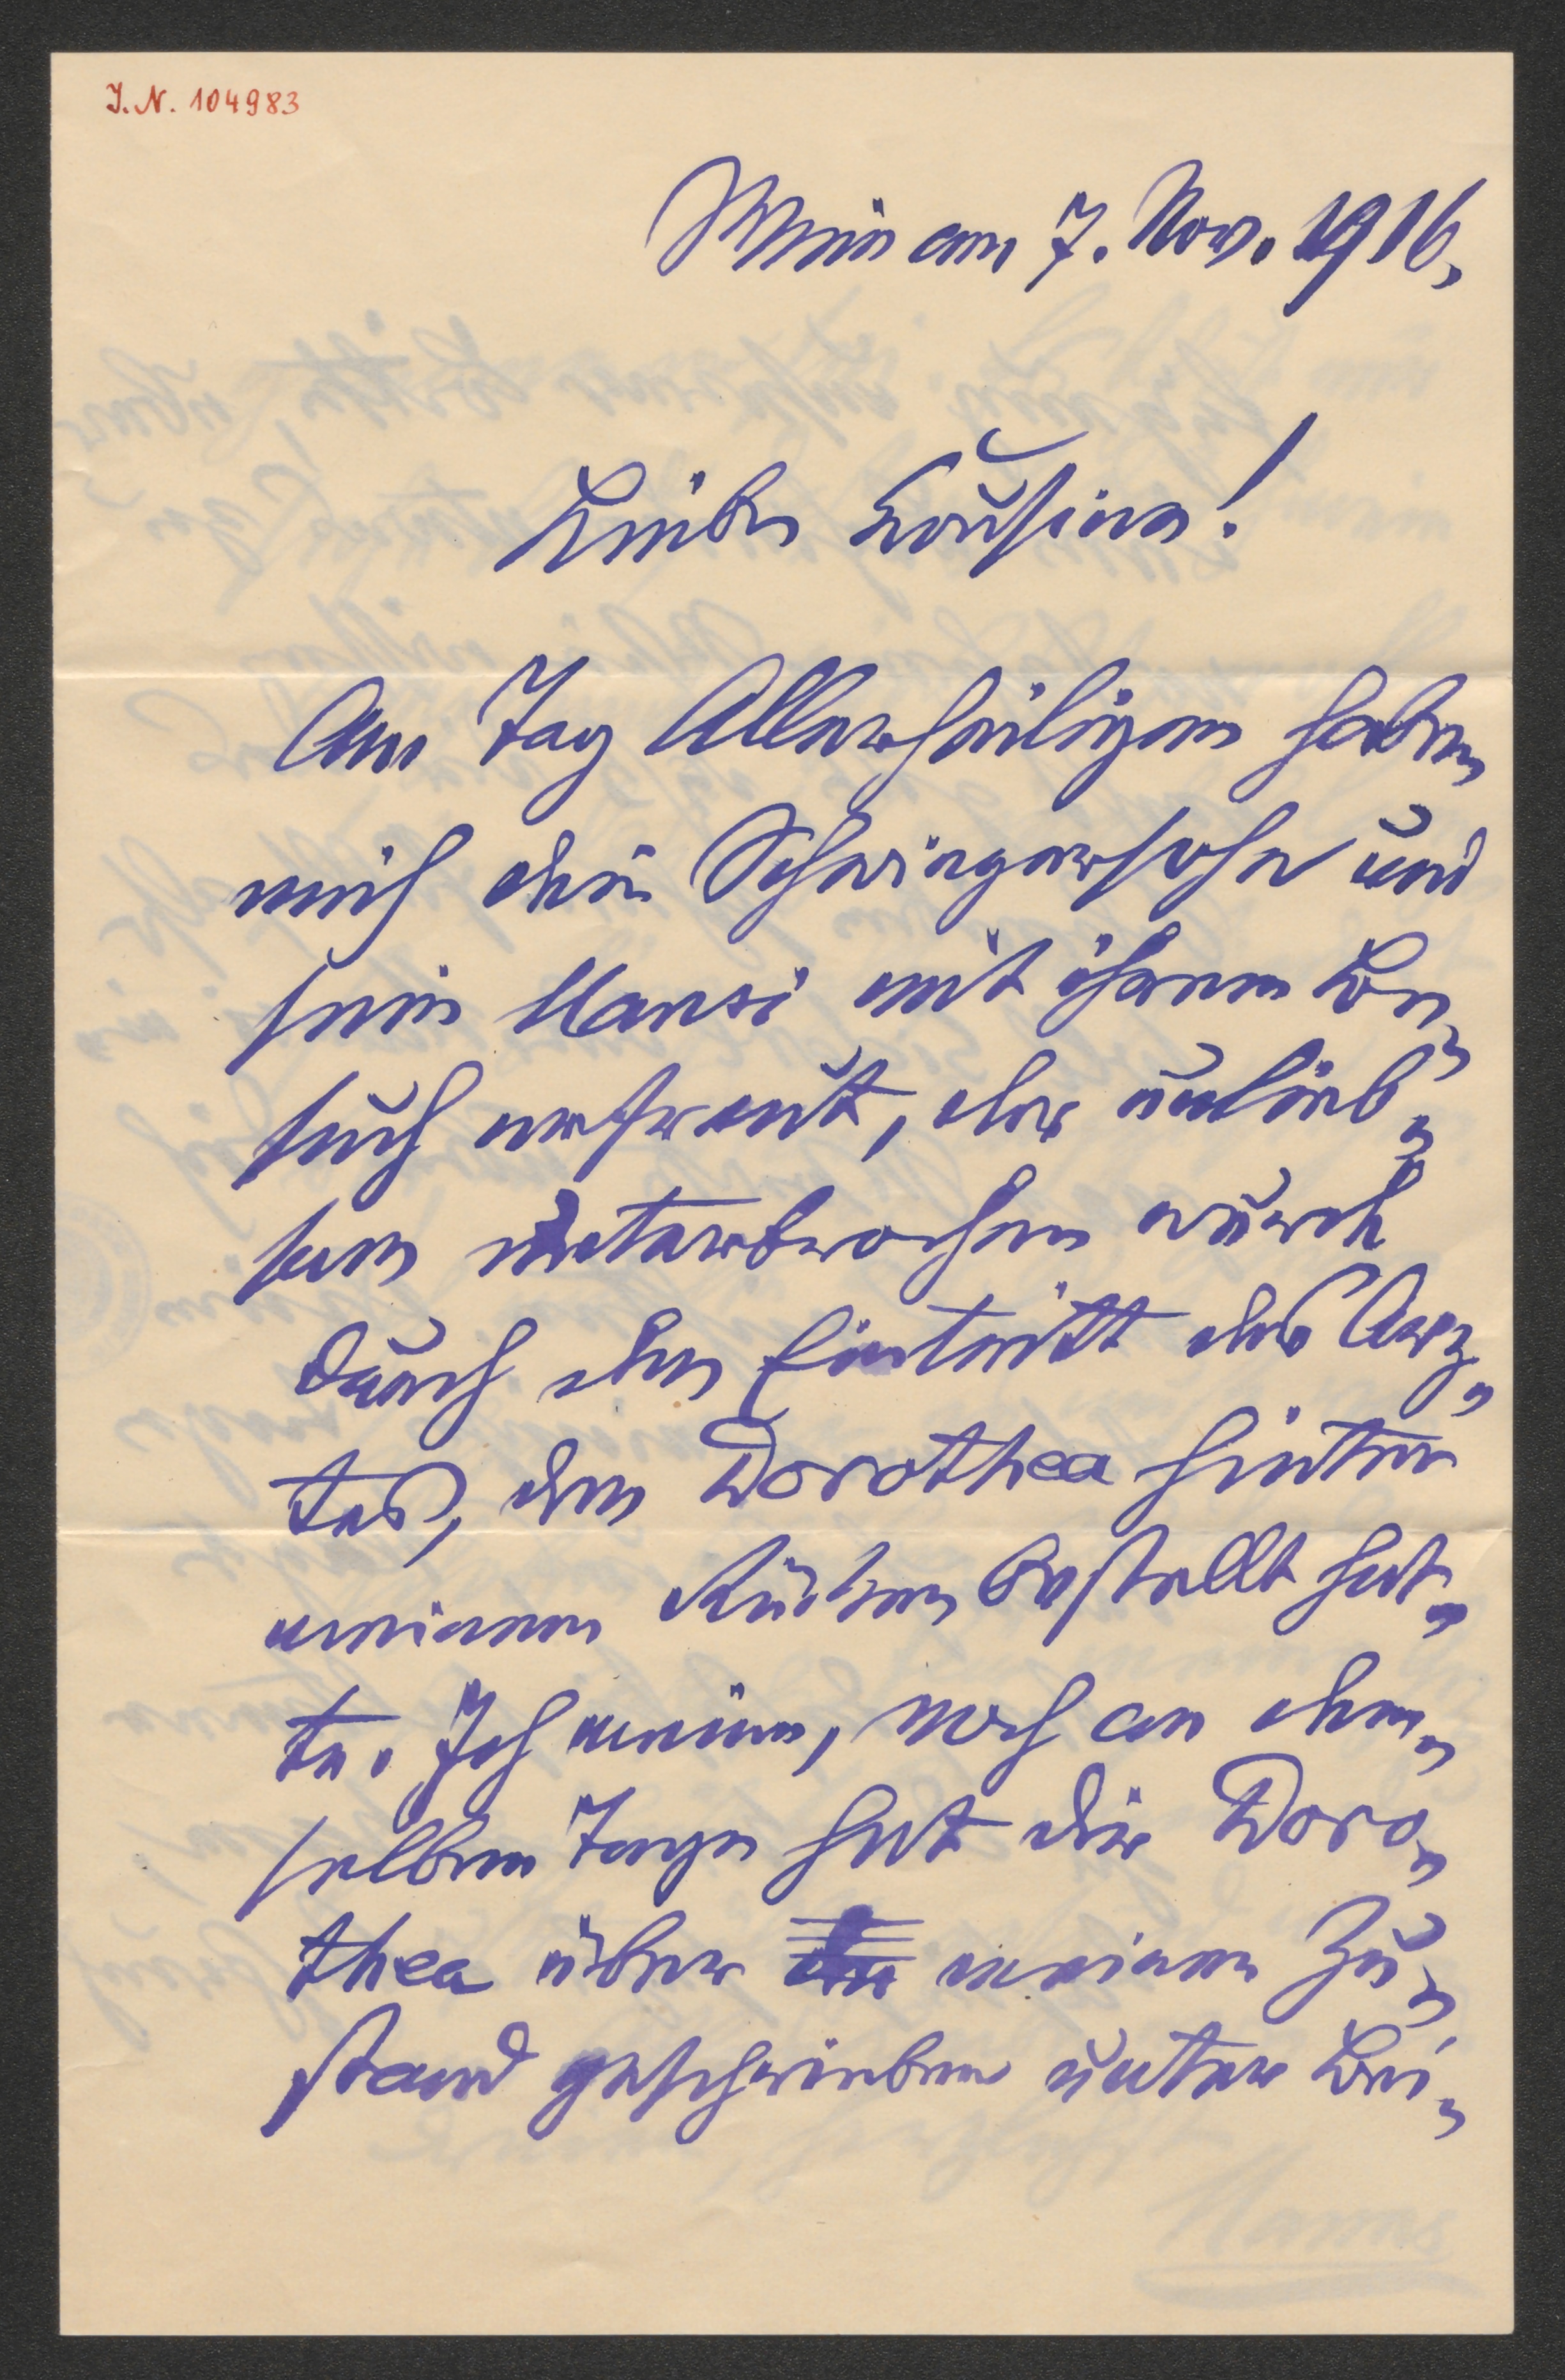 I.N. 104983
Wien am 7. Nov. 1916.
Liebe Cousine!
Am Tag Allerheiligen haben
mich dein Schwiegersohn und
seine Mansi mit ihrem Be-
such erfreut, der unlieb-
sam unterbrochen wurde
durch den Eintritt des Arz-
tes, den Dorothea hinter
meinem Rücken bestellt hat-
te. Ich meine, noch an dem-
selben Tage hat die Doro-
thea über meinen Zu-
stand geschrieben unter Bei-